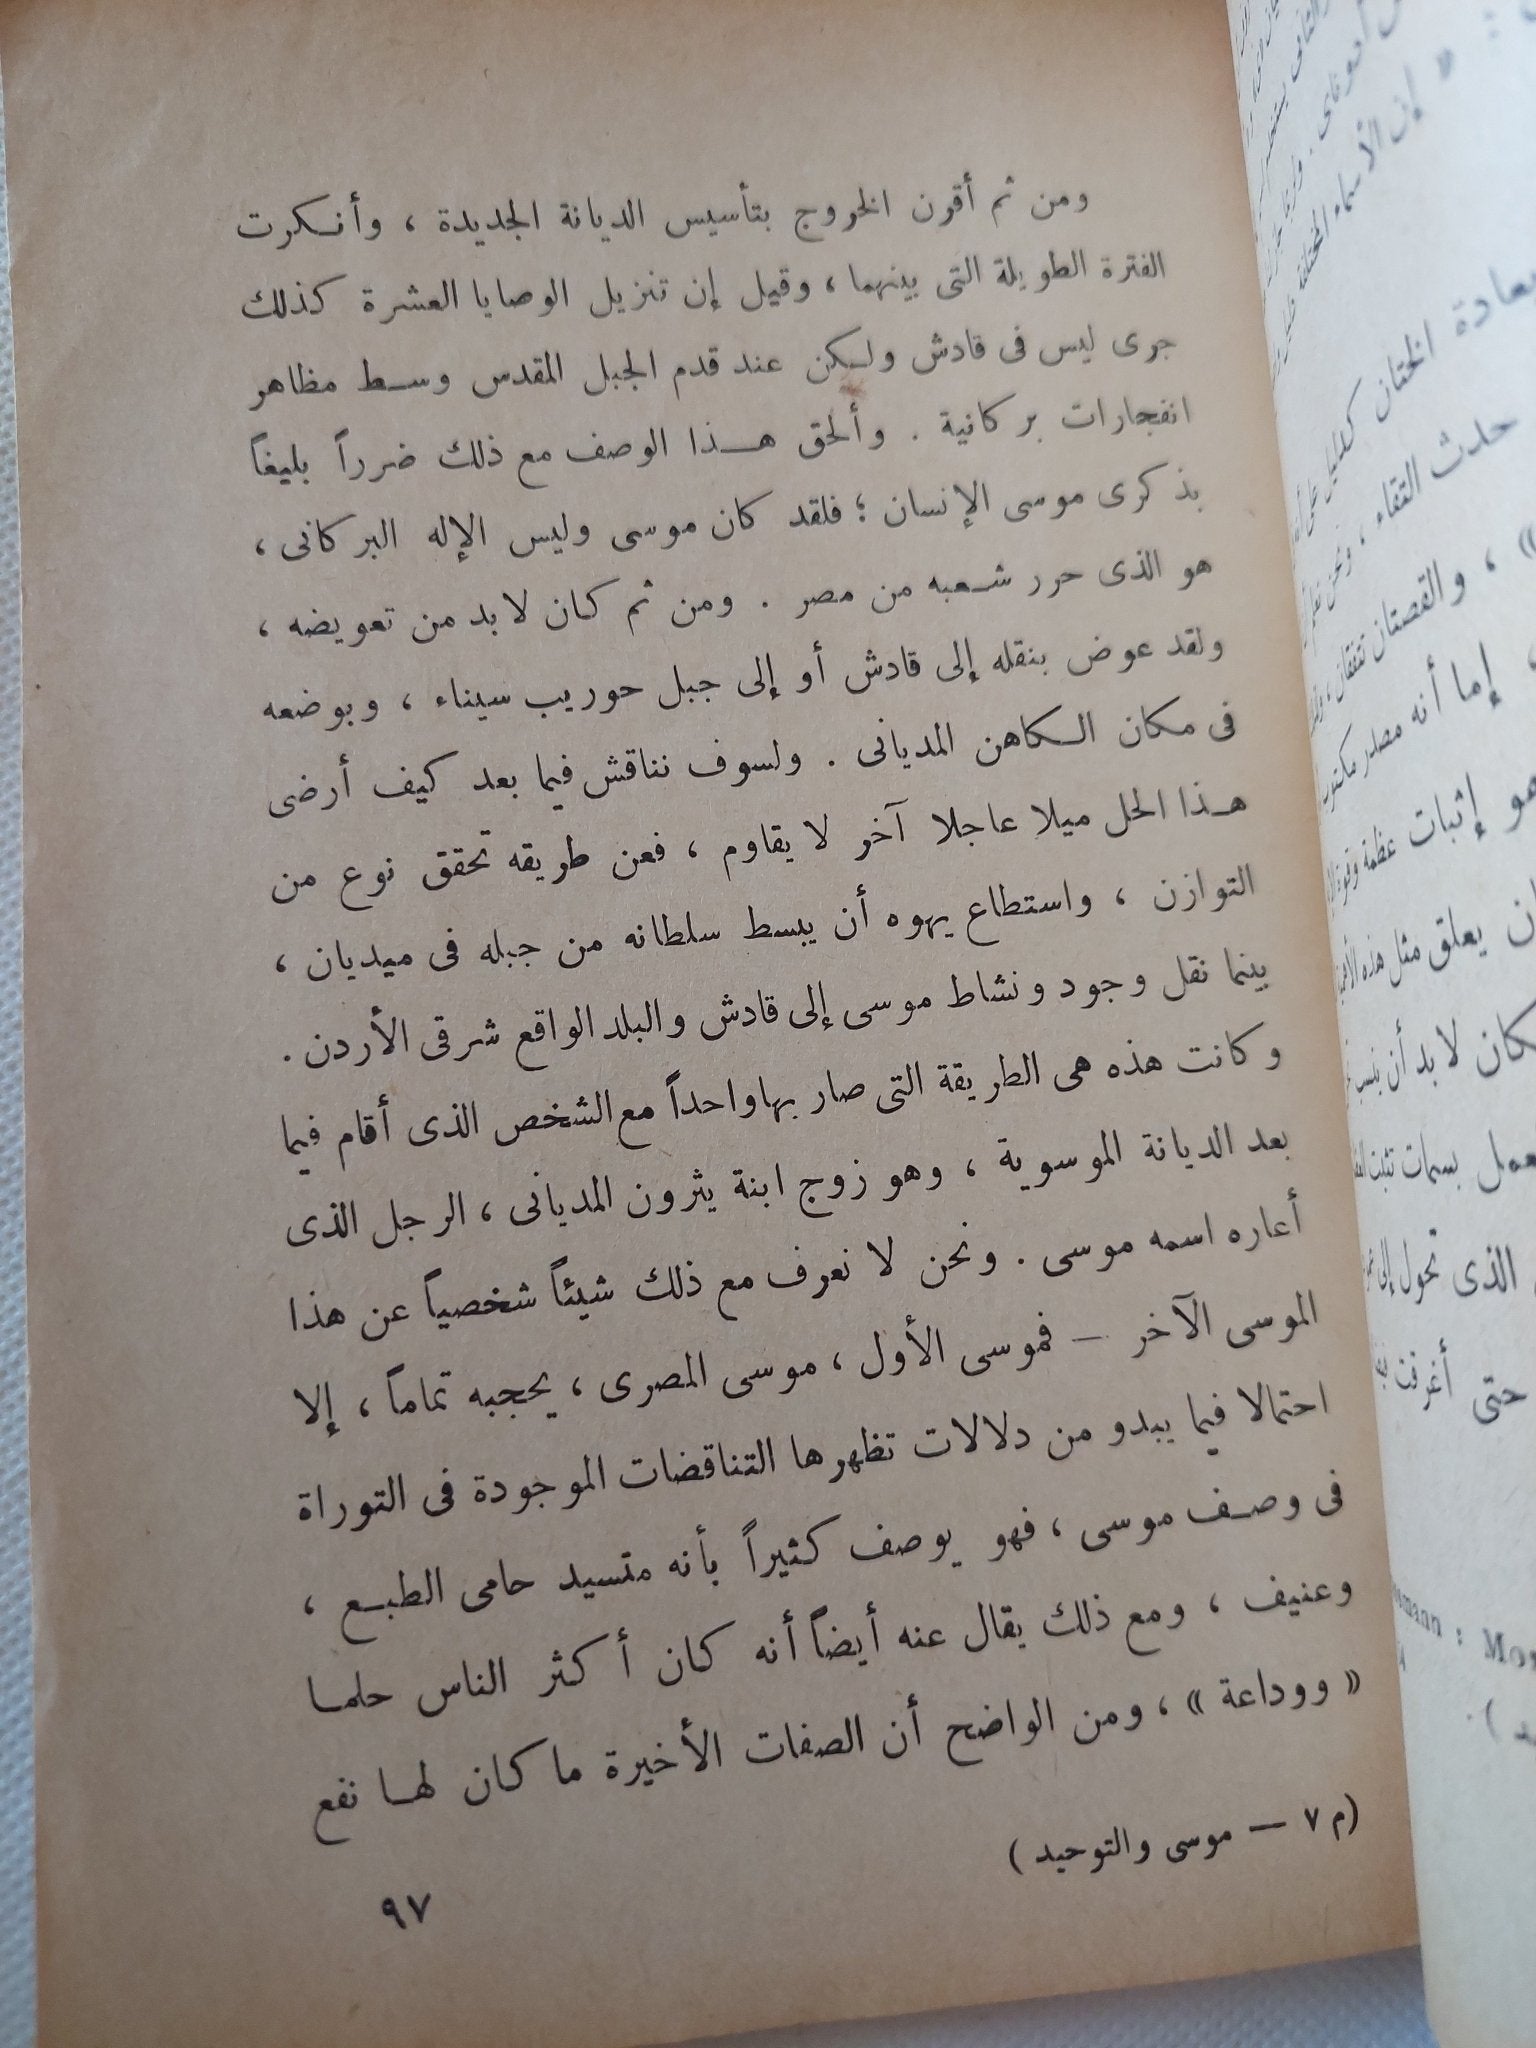 ومن ثم أقرن الخروج بتأسيس الديانة الجديدة ، وأنكرت
الفترة الطويلة التى بينهما ، وقيل إن تنزيل الوصايا العشرة كذلك
جرى ليس فى قادش ولكن عند قدم الجبل المقدس وسط مظاهر
انفجارات بركانية . وألحق هذا الوصف مع ذلك ضرراً بليغاً
بذكرى موسى الإنسان ؛ فلقد كان موسى وليس الإله البركانى ،
هو الذى حرر شعبه من مصر . ومن ثم كان لابد من تعويضه ،
ولقد عوض بنقله إلى قادش أو إلى جبل حوريب سيناء ، وبوضعه
فى مكان الكاهن المديانى . ولسوف نناقش فيما بعد كيف أرضى
هذا الحل ميلا عاجلا آخر لا يقاوم ، فعن طريقه تحقق نوع من
التوازن ، واستطاع يهوه أن يبسط سلطانه من جبله فى ميديان ،
بينما نقل وجود ونشاط موسى إلى قادش والبلد الواقع شرقى الأردن .
وكانت هذه هى الطريقة التى صار بها واحداً مع الشخص الذى أقام فيما
بعد الديانة الموسوية ، وهو زوج ابنة يثرون المديانى ، الرجل الذى
أعاره اسمه موسى . ونحن لا نعرف مع ذلك شيئاً شخصياً عن هذا
الموسى الآخر – فموسى الأول ، موسى المصرى ، يحجبه تماماً ، إلا
احتمالا فيما يبدو من دلالات تظهرها التناقضات الموجودة فى التوراة
فى وصف موسى ، فهو يوصف كثيراً بأنه متسيد حامى الطبع ،
وعنيف ، ومع ذلك يقال عنه أيضاً أنه كان أكثر الناس حلما
« ووداعة » ، ومن الواضح أن الصفات الأخيرة ما كان لها نفع
(م ٧ — موسى والتوحيد )
٩٧
: « إن الأسماء المختلفة
الختان كدليل على
حدث التقاء ، ونحن نعلم
» ، والقصتان تتفقان ،
إما أنه مصدر مكتوب
هو إثبات عظمة وقوة
يعلق مثل هذه
لا بد أن
بسمات
الذى تحول إلى
حتى أغرقت